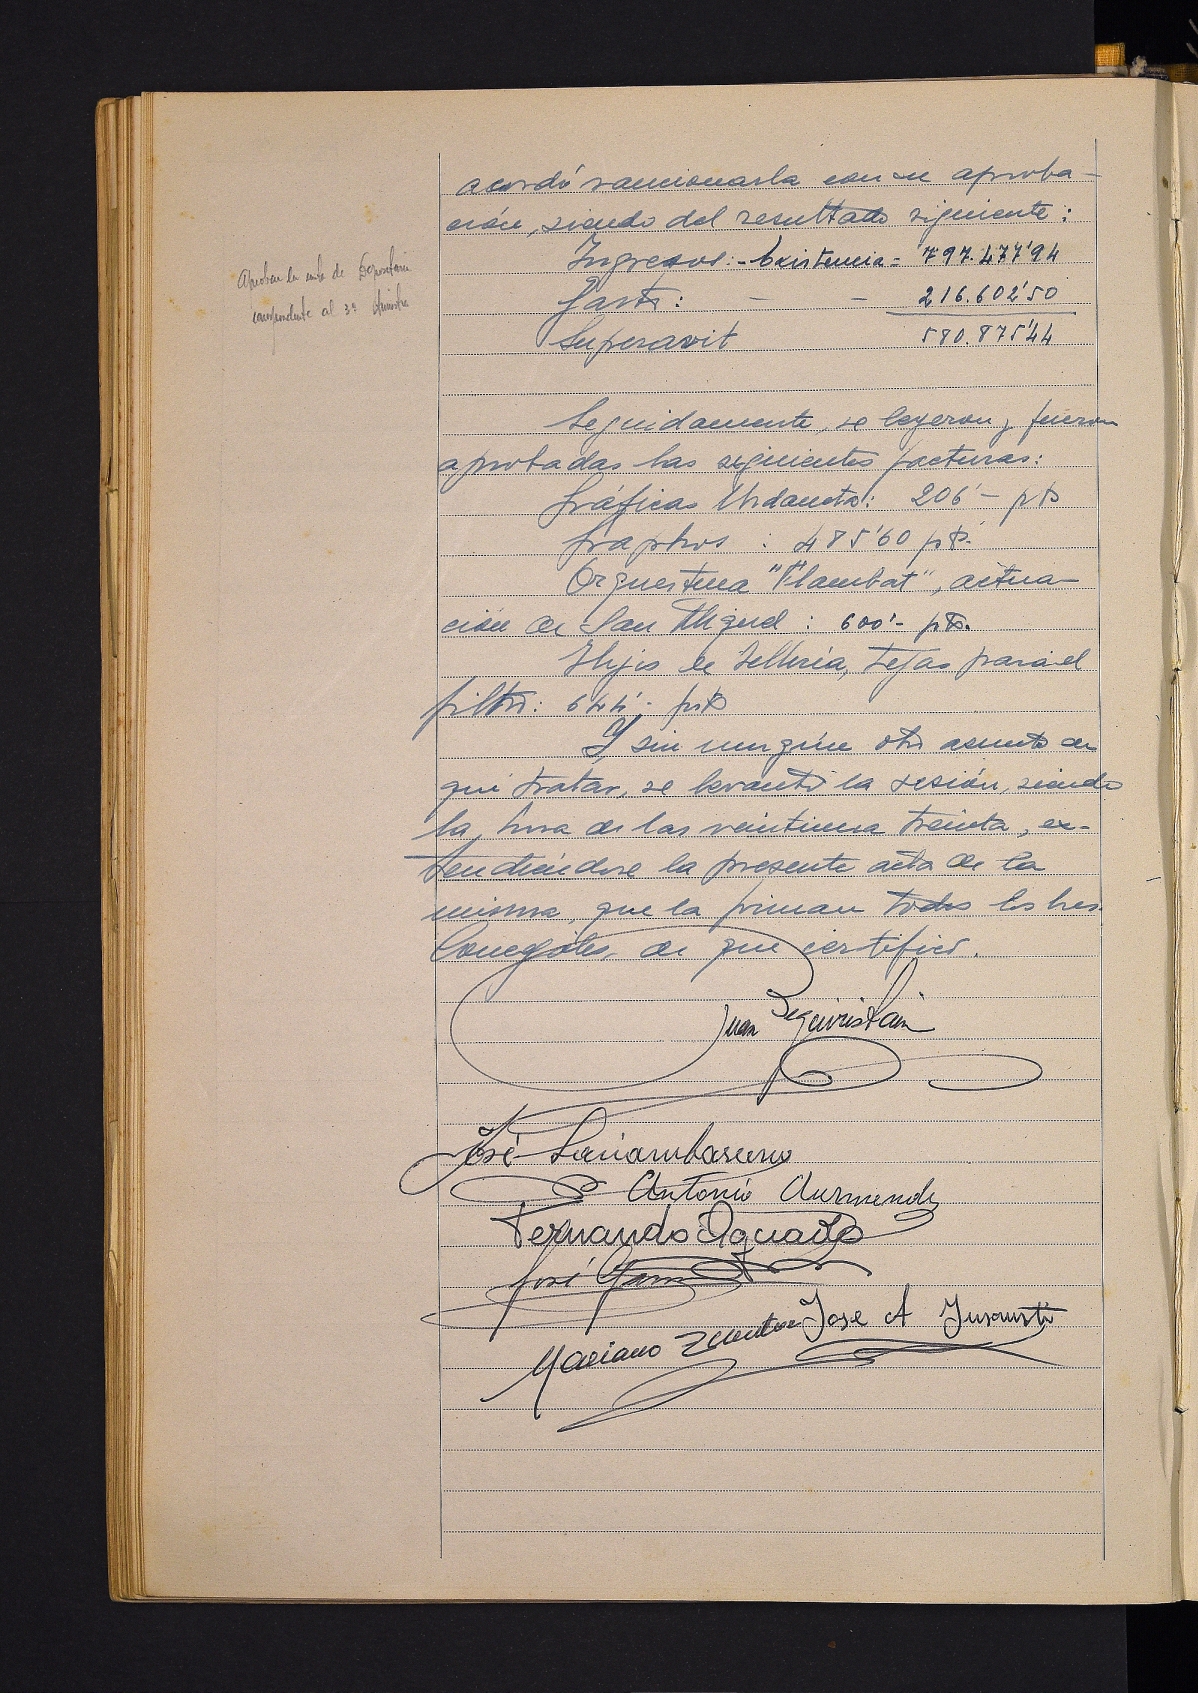 acordó sancionarla con su aproba-
ción, siendo del resultado siguiente:
Ingresos:- Existencia = 797.477'94
Gastos: - - 216.602'50
Superavit 580.875'44
Aprobar la cuenta de Depositaria
correspondiente al 3er trimestre
Seguidamente, se leyeron y fueron
aprobadas las siguientes facturas:
Gráficas Urdaneta: 206'- pts
Graphos : 485'60 pts.
Orquestina "Flambat", actua-
ción de San Miguel : 600'- pts.
Hijos de Tellería, tejas para el
filtro: 644'- pts
Y sin ningún otro asunto de
que tratar, se levantó la sesión, siendo
la hora de las veintiuna treinta, ex-
tendiéndose la presente acta de la
misma, que la firman todos los Sres.
Concejales, de que certifico.
Juan Beguiristain
José
Antonio Aurmendi
Fernando Aguado
José
Mariano Jose A Insausti